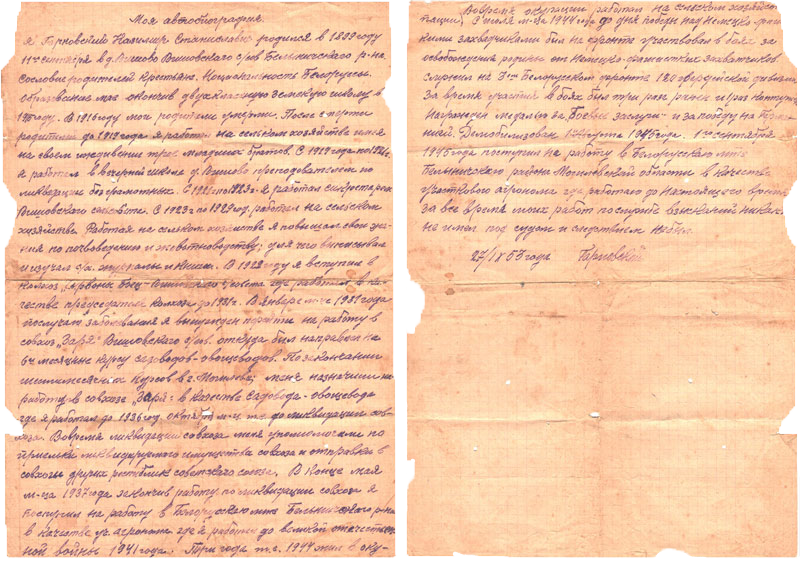 Моя автобиография.
Я Горновский Казимир Станиславович родился в 1899 году
11го сентября в д. Вишово Вишовского с/сов Белыничского р-на
Сословие родителей крестьяне. Национальность Белоруссы.
Образование мое окончив двухклассную земскую школу в
году. В 1916 году мои родители умерли. После смерти
родителей до 1919 года я работал на сельском хозяйстве имея
на своем иждивении трех младших братов. С 1919 года по 1921г.
я работал в вечерней школе д. Вишово преподователем по
ликвидации безграмотных. С 1921г по 1923г. я работал секретарем
Вишовского сельсовета. С 1923г по 1929год. работал на сельском
хозяйстве. Работая на сельском хозяйстве я повышал свои зна-
ния по почвоведению и животноводству; для чего выписывал
и изучал с/х. журналы и книги. В году я вступил в
колхоз совета где работал в ка-
честве председателя колхоза до 1931г. В январе м-це 1931 года
получаю заболевания я вынужден перейти на работу в
совхоз „Заря" Вишовского с/сов. откуда был направлен на
6ти месячные курсы садоводов-овощеводов. По закончании
шестимесячных курсов в г. Могилеве; меня назначили на
работу в совхозе „Заря" в качестве садовода-овощевода
где я работал до 1936 год. октября м-ц т.е до ликвидации сов-
хоза. Вовремя ликвидации совхоза меня уполномочили по
приемке ликвидируемого имущества совхоза и отправка в
совхозы других республик советского союза. В конце мая
м-ца 1937 года закончив работу по ликвидации совхоза я
поступил на работу в Белорусскую мтс Белыничского р-на
в качестве уч. агронома где я работал до великой отечествен
ной войны 1941 года. Три года т.е. 1944 жил в оку-
пации. Вовремя окупации работал на сельском хозяйстве
С июля м-ца 1944 года до дня победы над немецко-фашист
скими захватчиками был на фронте участвовал в боях за
освобождения родины от немецко-фашистских захватчиков
Служил на 3ем Белорусском фронте 120 гвардейской дивизии.
За время участия в боях был три раза ранен и 1 раз контужен
Награжден медалью за Боевые заслуги и за победу на Герма
нией. Демобилизован августа 1945 года. 1го сентября
1945 года поступил на работу в Белорусскую мтс
Белыничского района Могилевской области в качестве
участкового агронома где работаю до настоящего время
за все время моих работ по службе взысканий никаких
не имел под судом и следствием не был.
27/IX 55 года Горновский